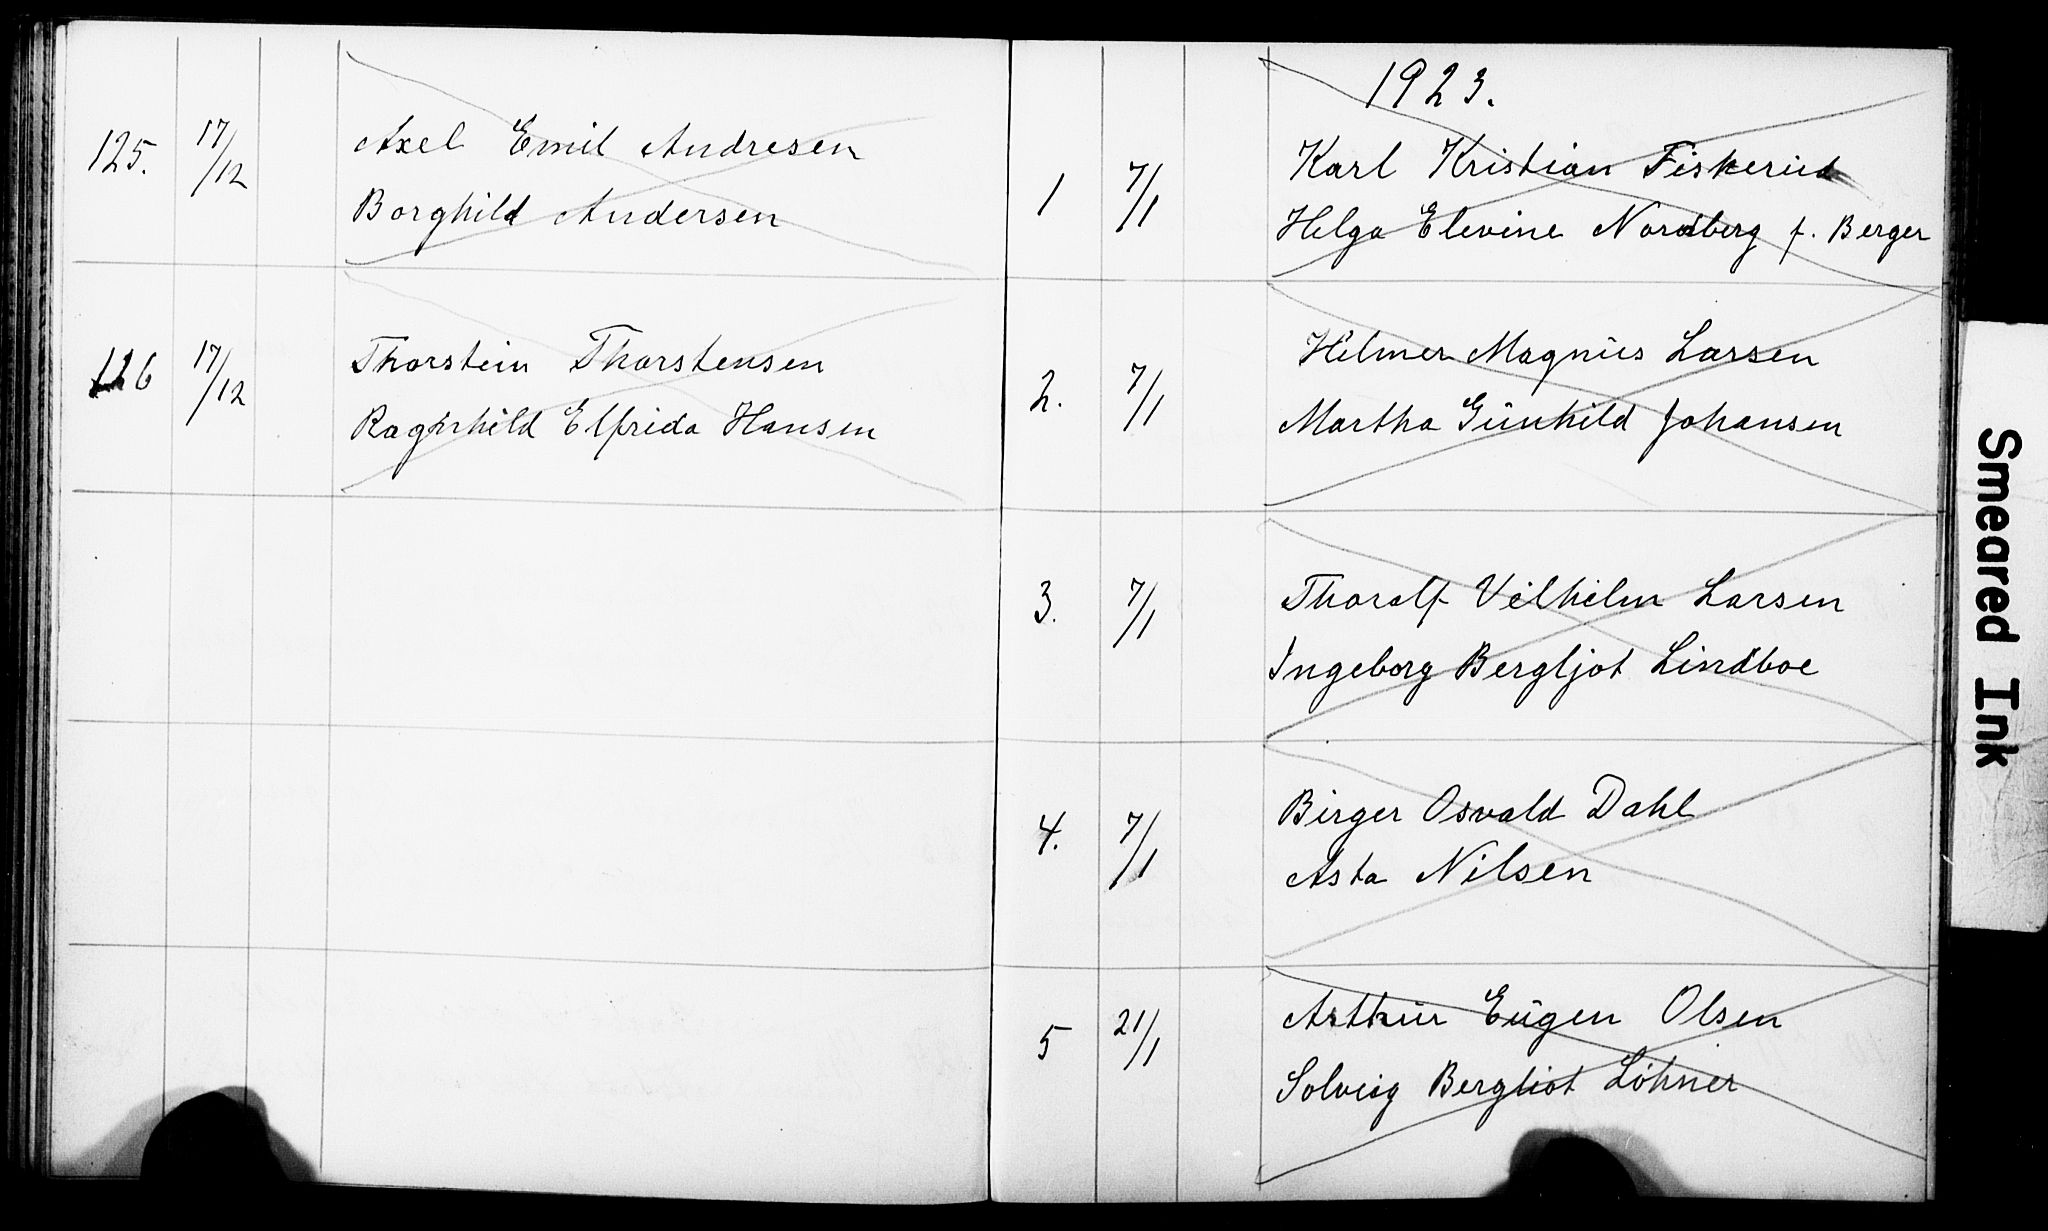 125. 17/12 Axel Emil Andresen
Borghild Andersen
126 17/12 Thorstein Thorstensen
Ragnhild Elfrida Hansen
1923.
1 7/1 Karl Kristian Fiskerud
Helga Elevine Nordberg f. Berger
2. 7/1 Hilmer Magnus Larsen
Martha Gunhild Johansen
3. 7/1 Thoralf Vilhelm Larsen
Ingeborg Bergljot Lindboe
4. 7/1 Birger Osvald Dahl
Asta Nilsen
5 21/1 Arthur Eugen Olsen
Solveig Bergliot Löhner
Smeared Ink